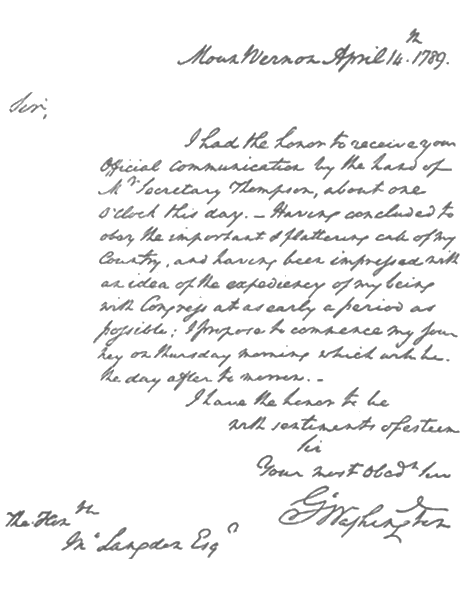 Mount Vernon April 14.th 1789.
Sir,
I had the honor to receive your
Official Communication by the hand of
Mr. Secretary Thompson, about one
O'Clock this day. — Having concluded to
obey the important & flattering call of my
Country, and having been impressed with
an idea of the expediency of my being
with Congress at as early a period as
possible; I propose to commence my jour
ney on thursday morning which will be
the day after to morrow. —
I have the honor to be
with sentiments of esteem
Sir
Your most Obedt. Ser
Go Washington
The Honble
Jno. Langdon Esqr